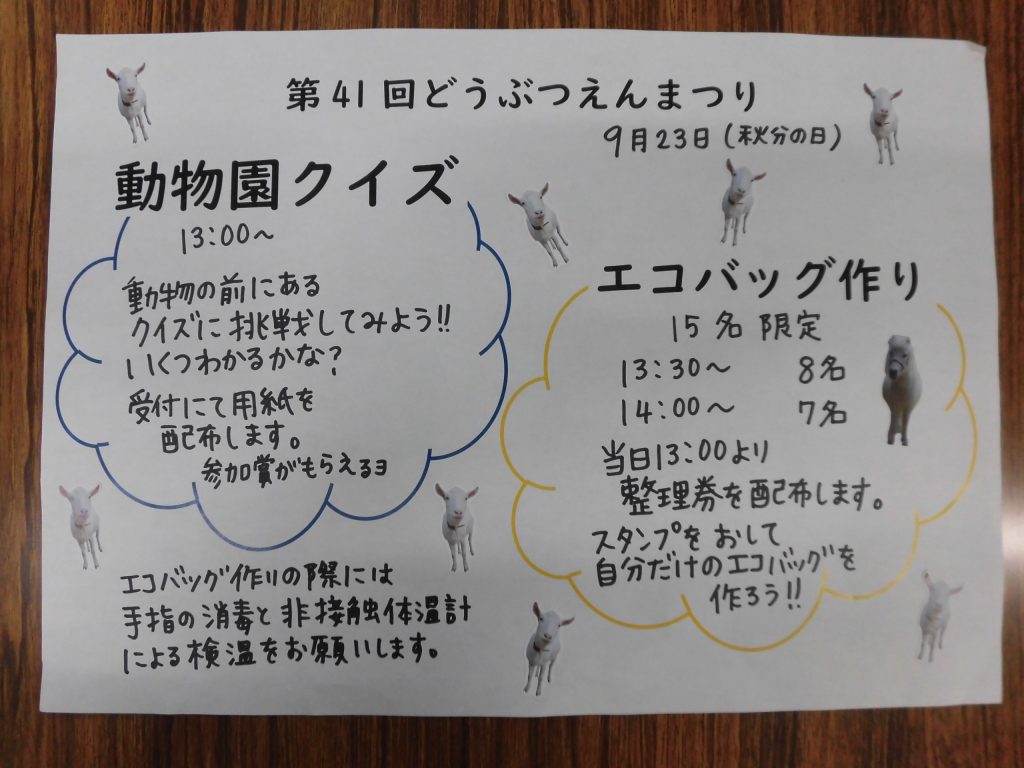 第41回どうぶつえんまつり
9月23日(秋分の日)
動物園クイズ
13:00～
動物の前にある
クイズに挑戦してみよう!!
いくつわかるかな?
受付にて用紙を
配布します。
参加賞がもらえるヨ
エコバッグ作り
15名限定
13:30～ 8名
14:00～ 7名
当日13:00より
整理券を配布します。
スタンプをおして
自分だけのエコバッグを
作ろう!!
エコバッグ作りの際には
手指の消毒と非接触体温計
による検温をお願いします。